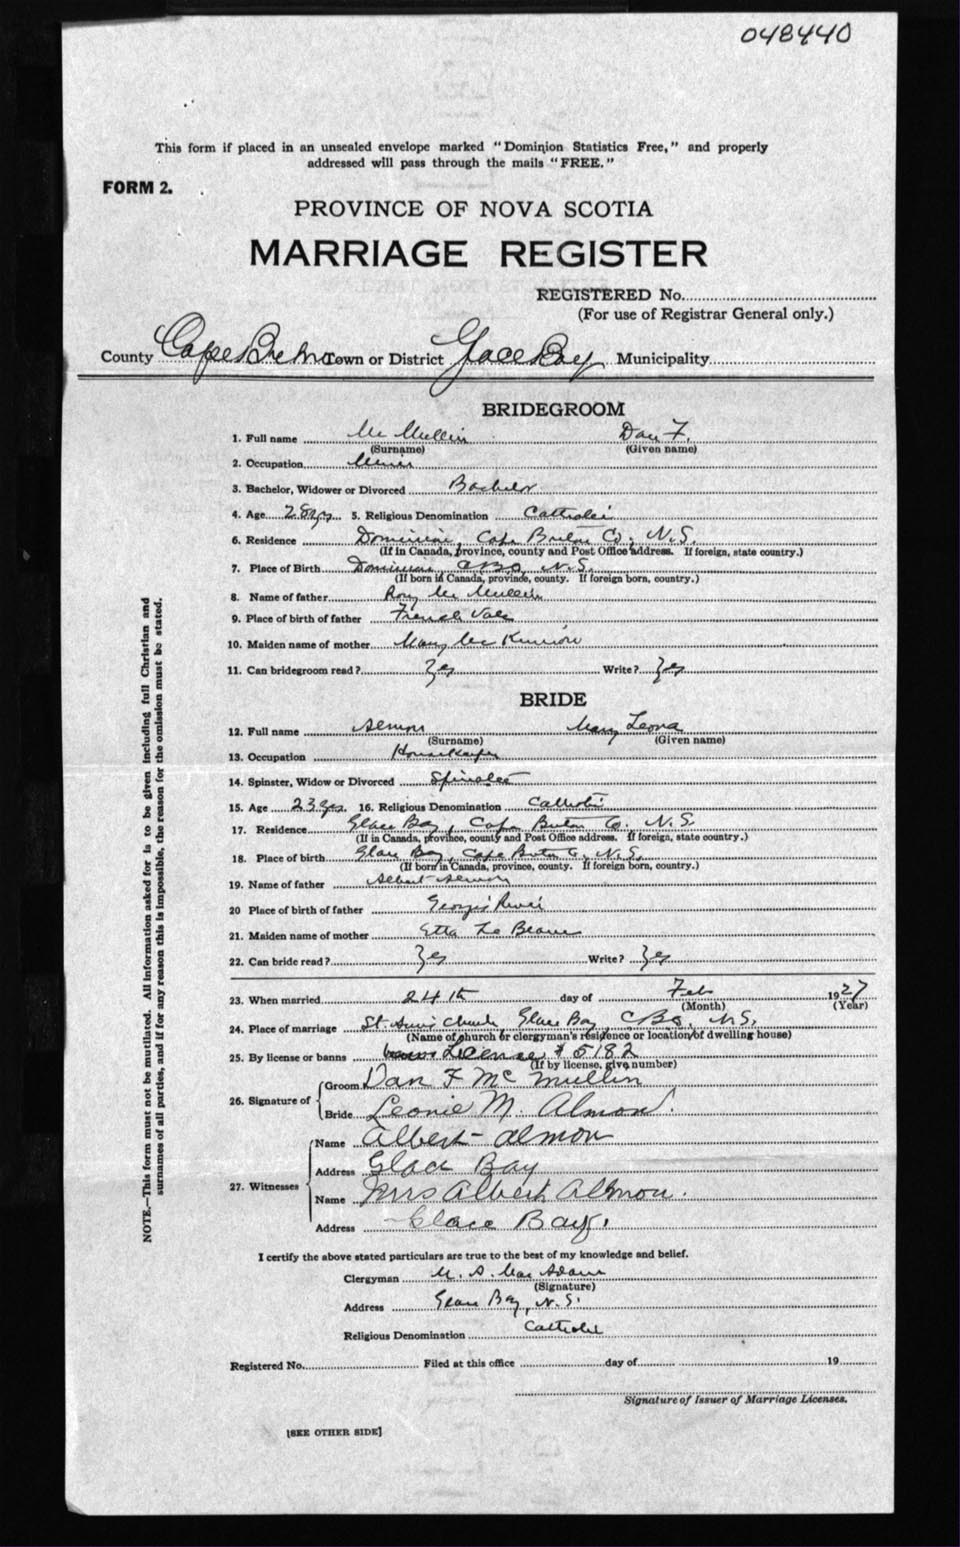 048440
This form if placed in an unsealed envelope marked "Dominion Statistics Free," and properly
addressed will pass through the mails "FREE."
FORM 2.
PROVINCE OF NOVA SCOTIA
MARRIAGE REGISTER
REGISTERED No.
(For use of Registrar General only.)
County Cape Breton Town or District Glace Bay Municipality
BRIDEGROOM
1. Full name Mc Mullin Dan F.
(Surname) (Given name)
2. Occupation Miner
3. Bachelor, Widower or Divorced Bachelor
4. Age 28 yrs 5. Religious Denomination Catholic
6. Residence Dominion, Cape Breton Co, N.S.
(If in Canada, province, county and Post Office address. If foreign, state country.)
7. Place of Birth Dominion CBCo N.S.
(If born in Canada, province, county. If foreign born, country.)
8. Name of father Rory Mc Mullin
9. Place of birth of father French Vale
10. Maiden name of mother Mary Mc Kinnon
11. Can bridegroom read? Yes Write? Yes
BRIDE
12. Full name Almon Mary Leona
(Surname) (Given name)
13. Occupation Housekeeper
14. Spinster, Widow or Divorced Spinster
15. Age 23 yrs. 16. Religious Denomination Catholic
17. Residence Glace Bay, Cape Breton Co. N.S.
(If in Canada, province, county and Post Office address. If foreign, state country.)
18. Place of birth Glace Bay, Cape Breton Co, N.S.
(If born in Canada, province, county. If foreign born, country.)
19. Name of father Albert Almon
20 Place of birth of father Georges River
21. Maiden name of mother Etta Le
22. Can bride read? Yes Write? Yes
23. When married 24th day of Feb 1927
(Month) (Year)
24. Place of marriage St. Anns Church Glace Bay, CBCo, N.S.
(Name of church or clergyman's residence or location of dwelling house)
25. By license or banns License # 5182
(If by license, give number)
26. Signature of Groom Dan F Mc Mullin
Bride Leonie M. Almon.
27. Witnesses Name Albert Almon
Address Glace Bay
Name Mrs Albert Almon.
Address Glace Bay.
I certify the above stated particulars are true to the best of my knowledge and belief.
Clergyman M. A. Mac Adam
(Signature)
Address Glace Bay, N.S.
Religious Denomination Catholic
Registered No. Filed at this office day of 19
Signature of Issuer of Marriage Licenses.
[SEE OTHER SIDE]
NOTE.—This form must not be mutilated. All information asked for is to be given including full Christian and
surnames of all parties, and if for any reason this is impossible, the reason for the omission must be stated.